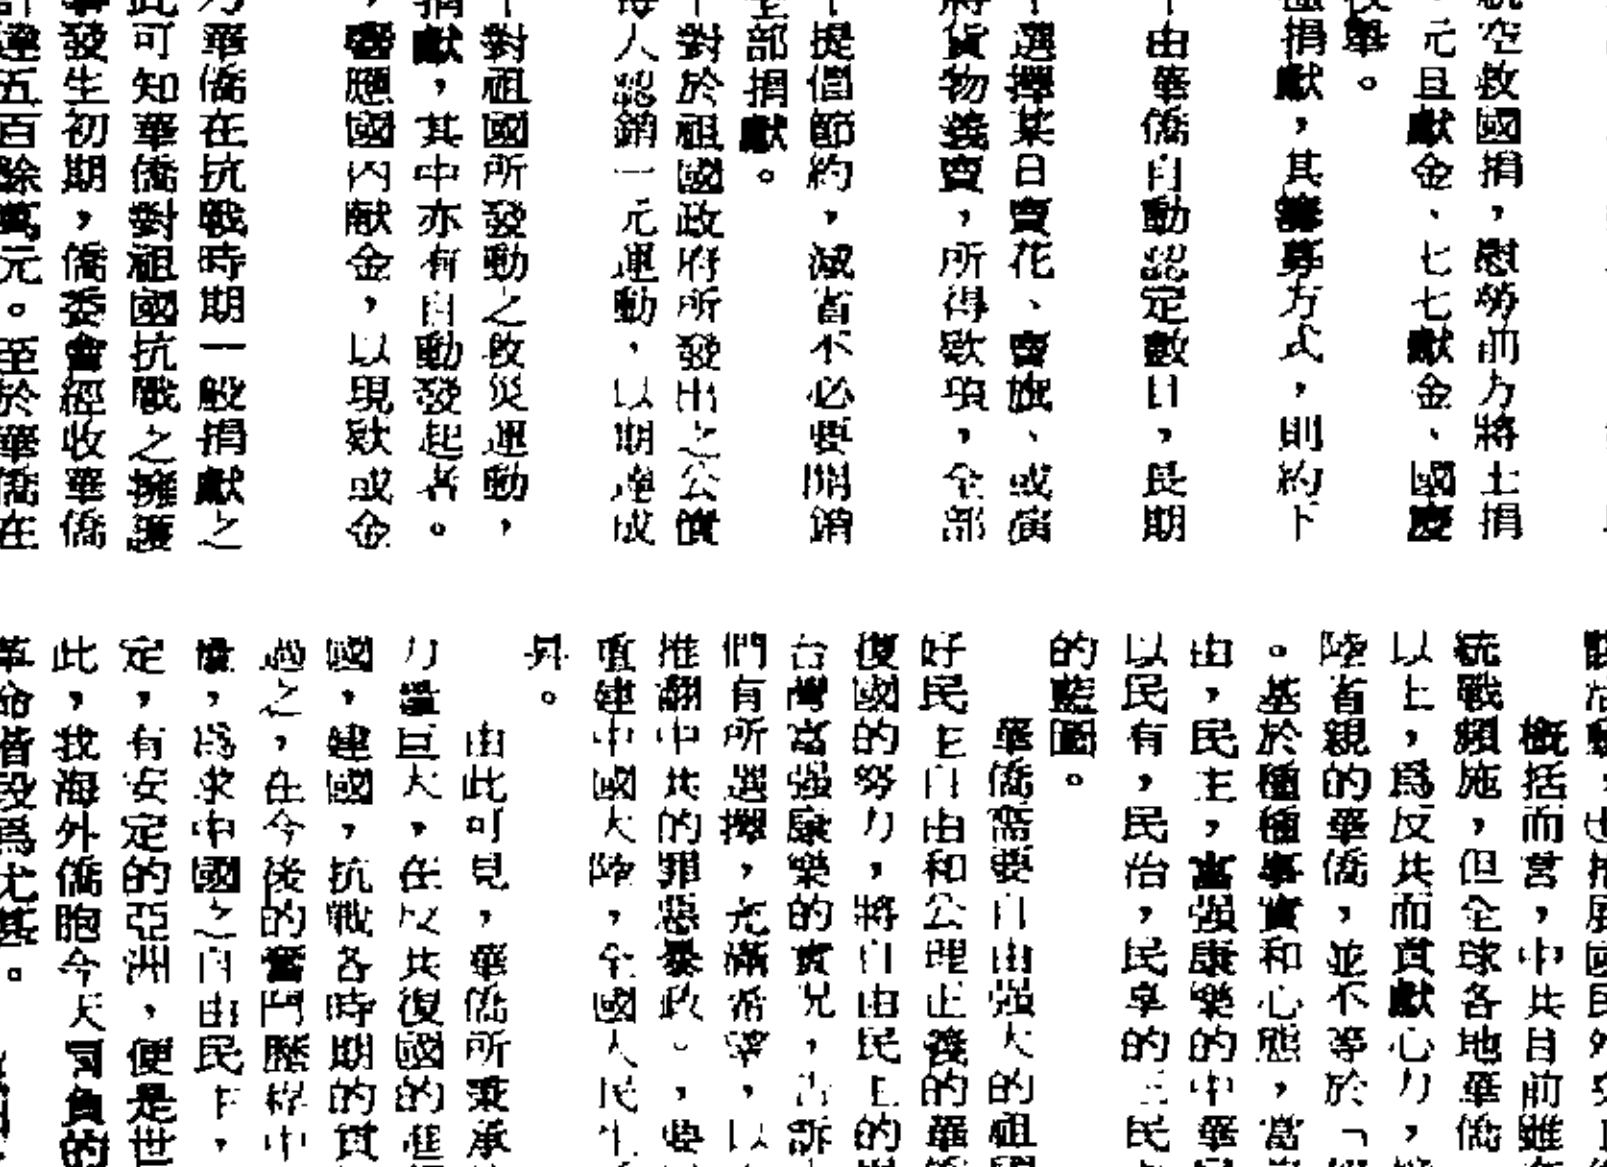 航空救國捐，慰勞前方將士捐
、元旦獻金、七七獻金、國慶
。
捐獻，其籌募方式，則約下
由華僑自動認定數目，長期
選擇某日賣花、賣旗、或演
將貨物義賣，所得欵項，全部
提倡節約，減省不必要開銷
全部捐獻。
對於祖國政府所發出之公債
每人認銷一元運動，以期達成
對祖國所發動之救災運動，
捐獻，其中亦有自動發起者。
，響應國內献金，以現欵或金
華僑在抗戰時期一般捐獻之
此可知華僑對祖國抗戰之擁護
發生初期，僑委會經收華僑
計達五百餘萬元。至於華僑在
概括而言，中共目前雖
統戰頻施，但全球各地華僑
以上，爲反共而貢獻心力，
陸省親的華僑，並不等於「
。基於種種事實和心態，當
由，民主，富强康樂的中華
以民有，民治，民享的三民
的藍圖。
華僑需要自由强大的祖國
好民主自由和公理正義的華僑
復國的努力，將自由民主的
台灣富强康樂的實况，告訴
們有所選擇，充滿希望，以
推翻中共的罪惡暴政。，要
重建中國大陸，全國人民生
昇。
由此可見，華僑所秉承
力量巨大，在反共復國的進
國，建國，抗戰各時期的貢
過之，在今後的奮鬥歷程中
，爲求中國之自由民主，
定，有安定的亞洲，便是世
此，我海外僑胞今天肩負的
革命階段爲尤甚。